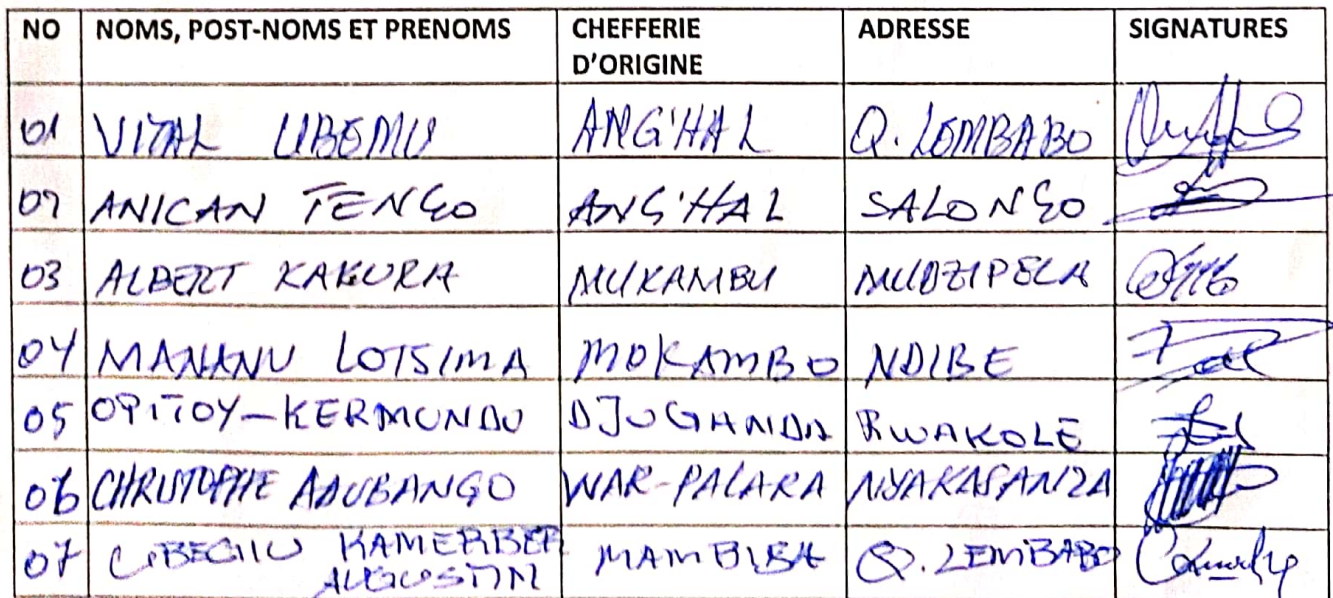 NO NOMS, POST-NOMS ET PRENOMS CHEFFERIE D'ORIGINE ADRESSE SIGNATURES
01 VITAL UBEMU ANG'HAL Q. LEMBABO
02 ANICAN TENGO ANG'HAL SALONGO
03 ALBERT KAKURA MUKAMBU MUDZIPELA
04 MANANU LOTSIMA MOKAMBO NDIBE
05 OPITOY-KERMUNDU DJUGANDA RWAKOLE
06 CHRISTOPHE ADUBANGO WAR-PALARA NYAKASANZA
07 KAMERBER AUGUSTIN MAMBISA Q. LEMBABO